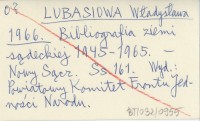 03 LUBASIOWA Władysława
1966. Bibliografia ziemi
sądeckiej 1945-1965. –
Nowy Sącz. Ss. 161. Wyd.:
Powiatowy Komitet Frontu Jed-
ności Narodu.
87/032/0955